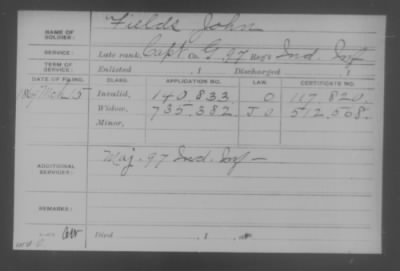 NAME OF SOLDIER: Fields John
SERVICE: Late rank, Capt. Co. G, 97 Reg't Ind. Inf
TERM OF SERVICE: Enlisted , 1 Discharged , 1
DATE OF FILING. CLASS. APPLICATION NO. LAW. CERTIFICATE NO.
Mch 15 Invalid, 140.833 O 117.820.
Widow, 735.382 J O 512.508.
Minor,
ADDITIONAL SERVICES: Maj. 97 Ind. Inf —
REMARKS:
Died , 1 , at